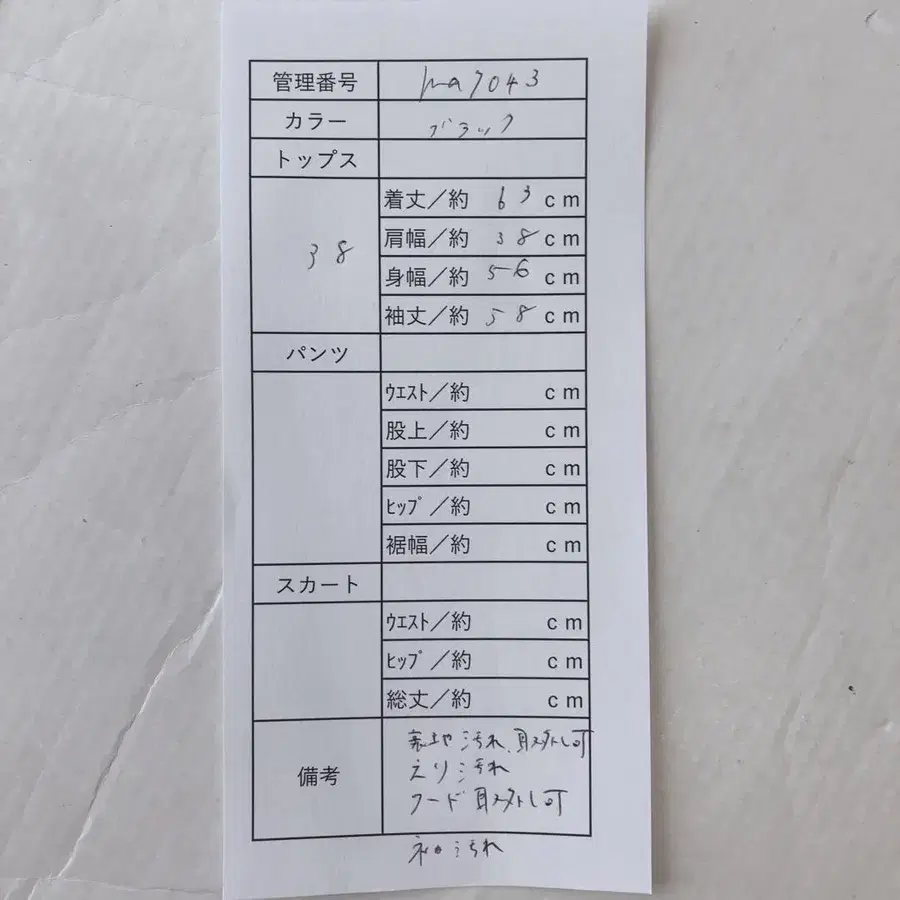 管理番号 ha7043
カラー ブラック
トップス
38
着丈/約 63 cm
肩幅/約 38 cm
身幅/約 56 cm
袖丈/約 58 cm
パンツ
ウエスト/約 cm
股上/約 cm
股下/約 cm
ヒップ/約 cm
裾幅/約 cm
スカート
ウエスト/約 cm
ヒップ/約 cm
総丈/約 cm
備考
裏地汚れ、取外し可
えり汚れ
フード取外し可
袖汚れ